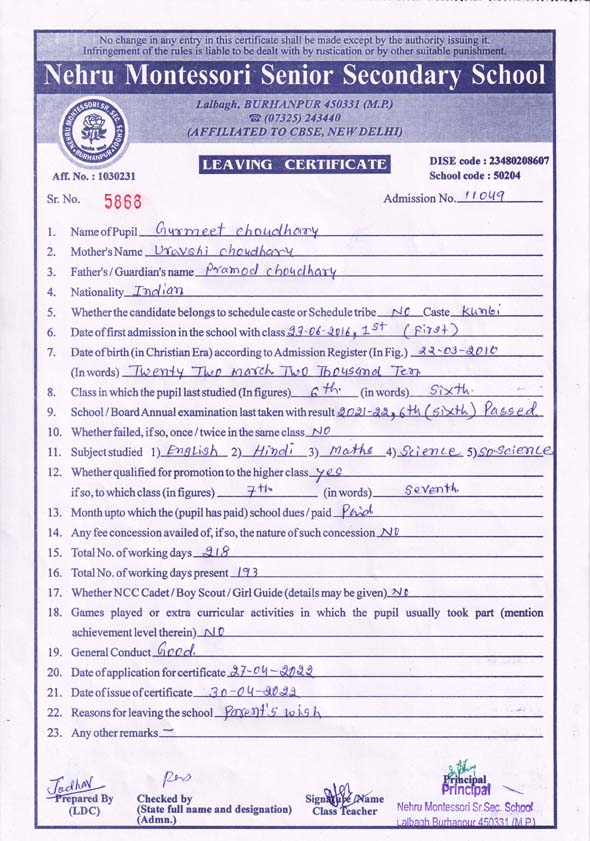 No change in any entry in this certificate shall be made except by the authority issuing it.
Infringement of the rules is liable to be dealt with by rustication or by other suitable punishment.
Nehru Montessori Senior Secondary School
Lalbagh, BURHANPUR 450331 (M.P.)
☎ (07325) 243440
(AFFILIATED TO CBSE, NEW DELHI)
NEHRU MONTESSORI SR. SEC. SCHOOL
BURHANPUR
LEAVING CERTIFICATE
DISE code : 23480208607
School code : 50204
Aff. No. : 1030231
Sr. No. 5868
Admission No. 11049
1. Name of Pupil Gurmeet choudhary
2. Mother's Name Uravshi choudhary
3. Father's / Guardian's name Pramod choudhary
4. Nationality Indian
5. Whether the candidate belongs to schedule caste or Schedule tribe NO Caste Kunbi
6. Date of first admission in the school with class 23-06-2016, 1st (First)
7. Date of birth (in Christian Era) according to Admission Register (In Fig.) 22-03-2010
(In words) Twenty Two march Two Thousand Ten
8. Class in which the pupil last studied (In figures) 6th (in words) Sixth
9. School / Board Annual examination last taken with result 2021-22, 6th (sixth) Passed
10. Whether failed, if so, once / twice in the same class NO
11. Subject studied 1) English 2) Hindi 3) Maths 4) Science 5) So-Science
12. Whether qualified for promotion to the higher class yes
if so, to which class (in figures) 7th (in words) Seventh
13. Month upto which the (pupil has paid) school dues / paid Paid
14. Any fee concession availed of, if so, the nature of such concession NO
15. Total No. of working days 218
16. Total No. of working days present 193
17. Whether NCC Cadet / Boy Scout / Girl Guide (details may be given) NO
18. Games played or extra curricular activities in which the pupil usually took part (mention
achievement level therein) NO
19. General Conduct Good
20. Date of application for certificate 27-04-2022
21. Date of issue of certificate 30-04-2022
22. Reasons for leaving the school Parent's wish
23. Any other remarks —
Jadhav
Prepared By
(LDC)
Checked by
(State full name and designation)
(Admn.)
Signature / Name
Class Teacher
Principal
Principal
Nehru Montessori Sr.Sec. School
Lalbagh Burhanpur 450331 (M.P.)